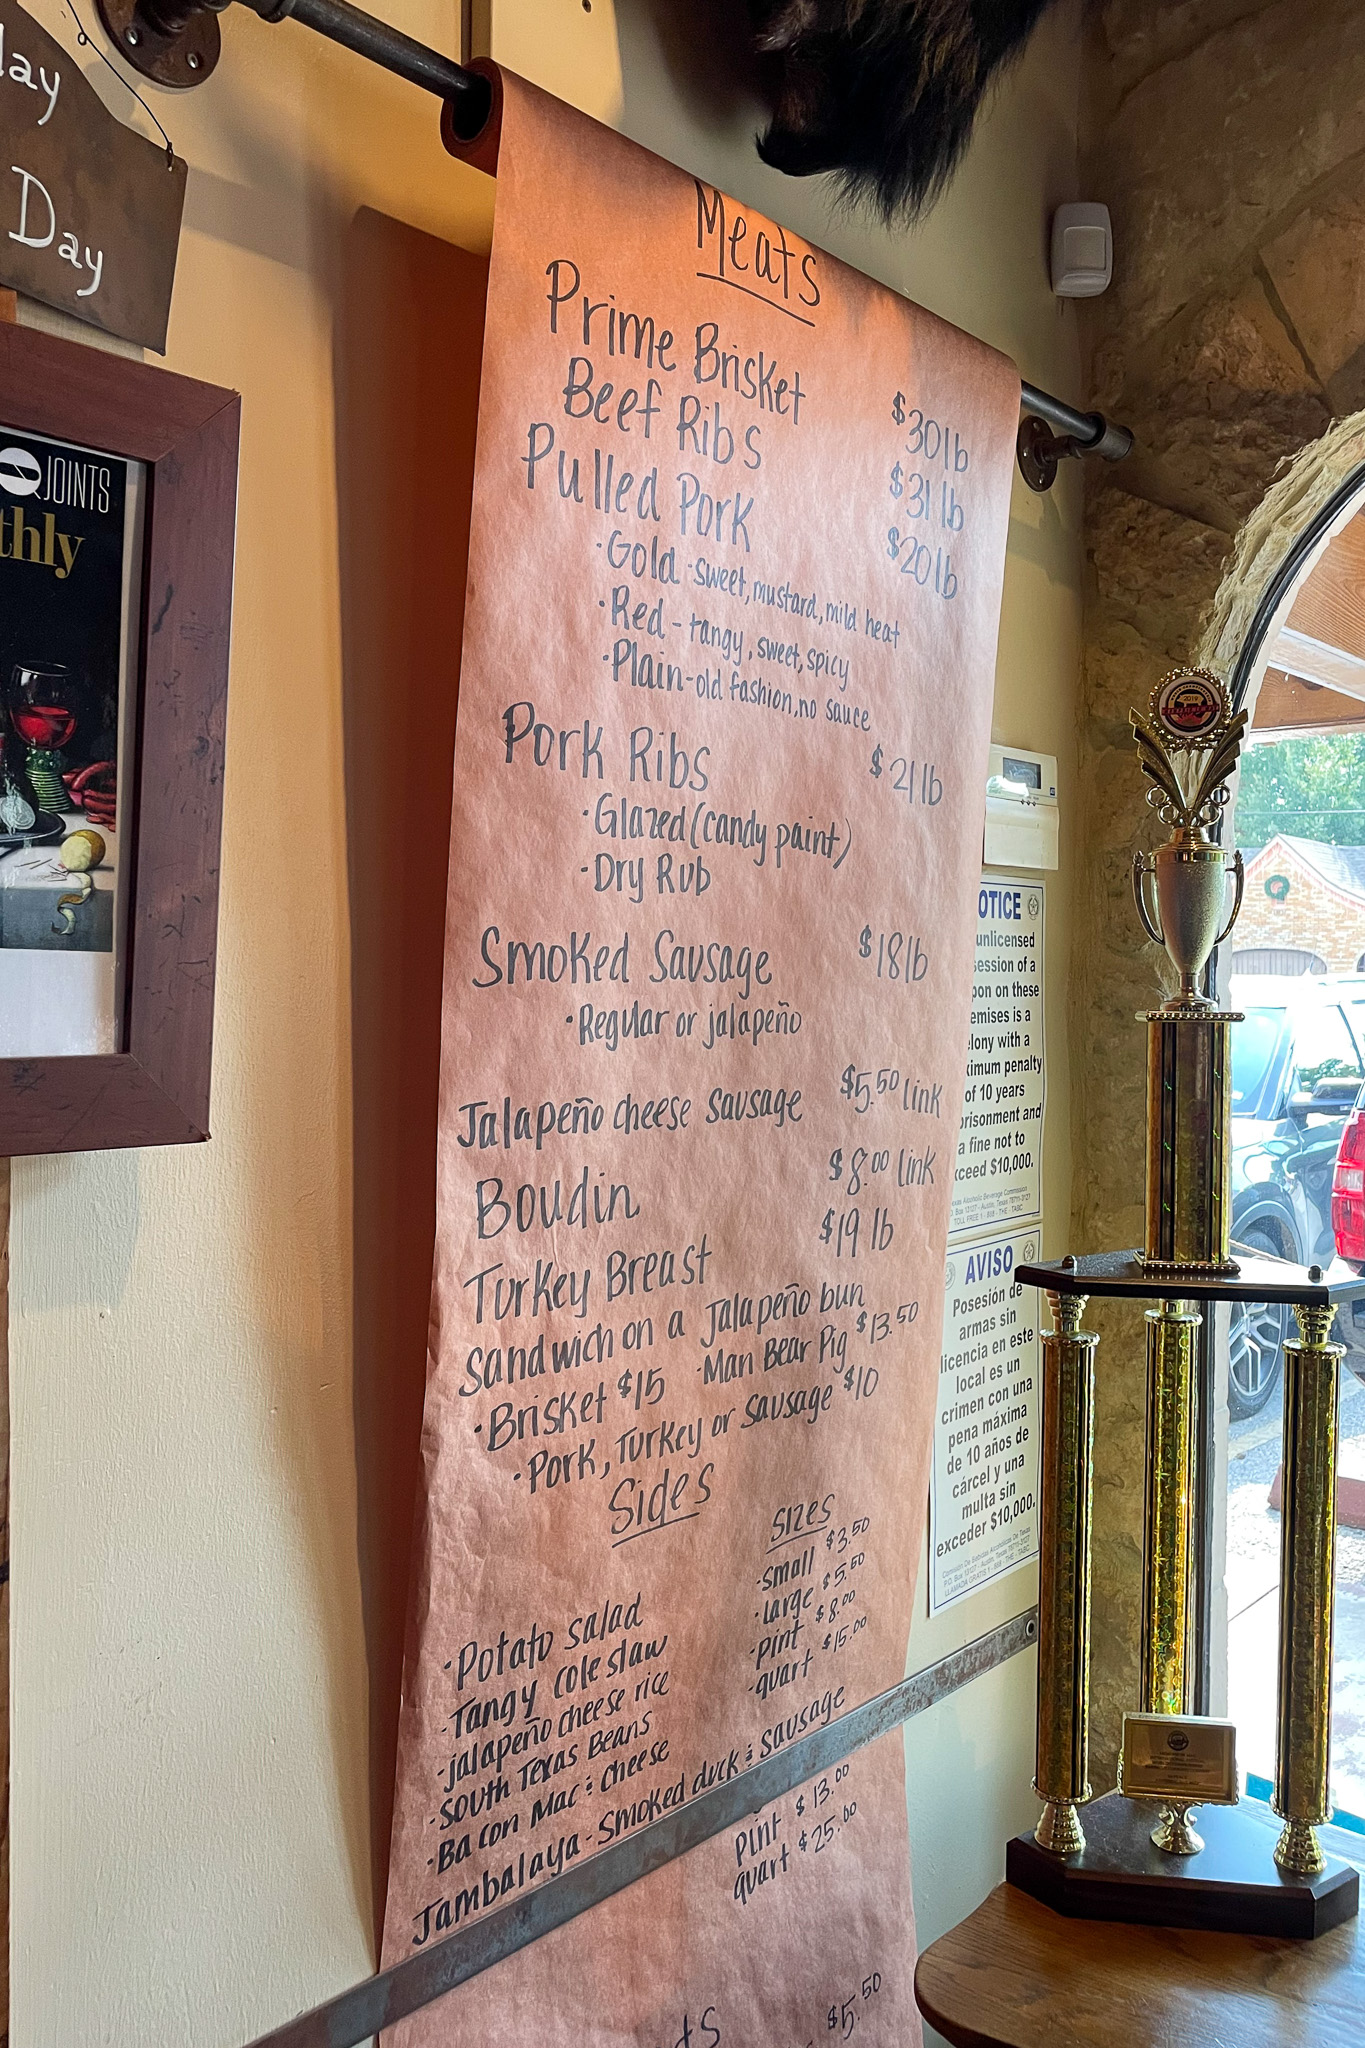 Day
JOINTS
Meats
Prime Brisket $30lb
Beef Ribs $31lb
Pulled Pork $20lb
·Gold-sweet, mustard, mild heat
·Red-tangy, sweet, spicy
·Plain-old fashion, no sauce
Pork Ribs $21lb
·Glazed (candy paint)
·Dry Rub
Smoked Sausage $18lb
·Regular or jalapeño
Jalapeño cheese sausage $5.50 link
Boudin $8.00 link
Turkey Breast $19 lb
Sandwich on a Jalapeño bun
·Brisket $15 ·Man Bear Pig $13.50
·Pork, Turkey or Sausage $10
Sides
Sizes
·small $3.50
·large $5.50
·pint $8.00
·quart $15.00
·Potato salad
·Tangy cole slaw
·jalapeño cheese rice
·South Texas Beans
·Bacon Mac & Cheese
Jambalaya-Smoked duck & sausage
pint $13.00
quart $25.00
$5.50
OTICE
unlicensed
session of a
pon on these
emises is a
elony with a
ximum penalty
of 10 years
prisonment and
a fine not to
xceed $10,000.
exas Alcoholic Beverage Commission
. Box 13127 - Austin, Texas 78711-3127
TOLL FREE 1 - 888 - THE - TABC
AVISO
Posesión de
armas sin
licencia en este
local es un
crimen con una
pena máxima
de 10 años de
cárcel y una
multa sin
exceder $10,000.
Comisión De Bebidas Alcohólicas De Texas
P.O. Box 13127 - Austin, Texas 78711-3127
LLAMADA GRATIS 1 - 888 - THE - TABC
2019